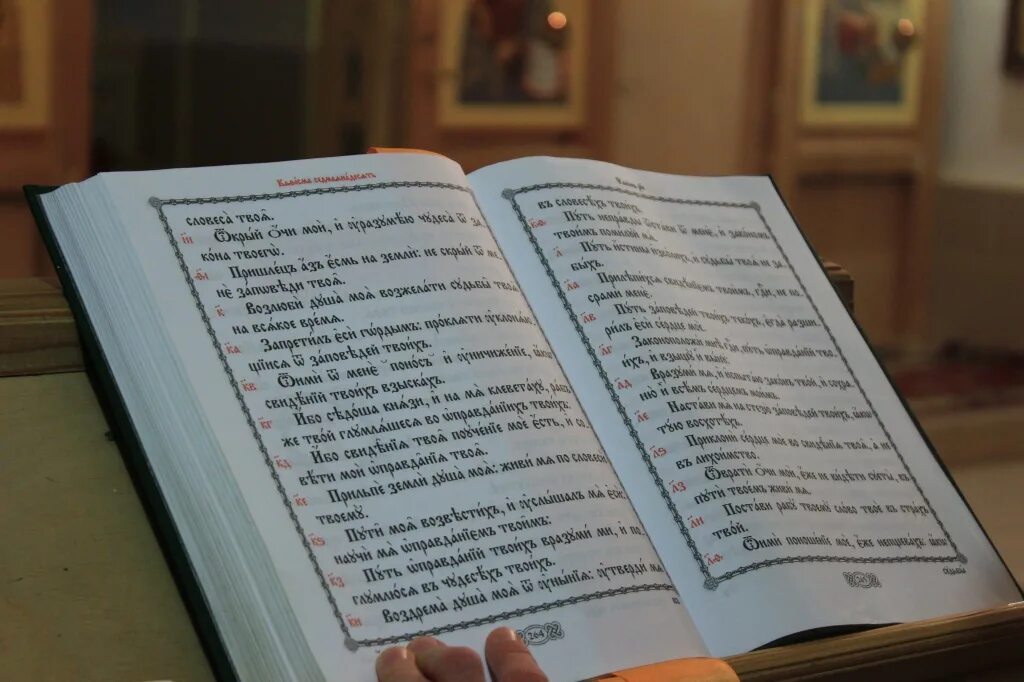 Каѳісма седмьнадесѧть
словеса̀ твоѧ̑.
Ѿкры́й ѻ҆́чи моѝ, и҆ ᲂу҆разꙋмѣ́ю чꙋдеса̀ ѿ за-
ко́на твоегѡ̀.
Пришле́цъ а҆́зъ є҆́смь на землѝ: не скры́й ѿ ме-
нѐ за́пѡвѣди твоѧ̑.
Возлюбѝ дꙋша̀ моѧ̀ возжела́ти сꙋдьбы̑ твоѧ̑
на всѧ́кое вре́мѧ.
Запрети́лъ є҆сѝ гѡ́рдымъ: про́клѧти ᲂу҆кланѧю-
щїисѧ ѿ за́повѣдей твои́хъ.
Ѿимѝ ѿ менє̀ поно́съ и҆ ᲂу҆ничиже́нїе, ꙗ҆́кѡ
свидѣ́нїй твои́хъ взыска́хъ.
И҆́бо сѣдо́ша кнѧ̑зи, и҆ на мѧ̀ клевета́хꙋ, ра́бъ
же тво́й глꙋмлѧ́шесѧ во ѡ҆правда́нїихъ твои́хъ.
И҆́бо свидѣ̑нїѧ твоѧ̑ поꙋче́нїе моѐ є҆́сть, и҆ со-
вѣ́ти моѝ ѡ҆правда̑нїѧ твоѧ̑.
Прильпѐ землѝ дꙋша̀ моѧ̀: живи́ мѧ по словесѝ
твоемꙋ̀.
Пꙋти̑ моѧ̑ возвѣсти́хъ, и҆ ᲂу҆слы́шалъ мѧ̀ є҆сѝ:
наꙋчи́ мѧ ѡ҆правда́нїємъ твои̑мъ.
Пꙋ́ть ѡ҆правда́нїй твои́хъ вразꙋми́ ми, и҆ по-
глꙋмлю́сѧ въ чꙋдесѣ́хъ твои́хъ.
Воздрема̀ дꙋша̀ моѧ̀ ѿ ᲂу҆ны́нїѧ: ᲂу҆тверди́ мѧ
264
въ словесѣ́хъ твои́хъ.
Пꙋ́ть непра́вды ѿста́ви ѿ менє̀, и҆ зако́номъ
твои́мъ поми́лꙋй мѧ̀.
Пꙋ́ть и҆́стины и҆зво́лихъ, и҆ сꙋдьбы̑ твоѧ̑ не за-
бы́хъ.
Прилѣпи́хсѧ свидѣ́нїємъ твои̑мъ, гдⷭ҇и, не по-
срамѝ менѐ.
Пꙋ́ть за́повѣдей твои́хъ теко́хъ, є҆гда̀ разши-
ри́лъ є҆сѝ се́рдце моѐ.
Законоположи́ мнѣ, гдⷭ҇и, пꙋ́ть ѡ҆правда́нїй тво-
и́хъ, и҆ взыщꙋ̀ и҆̀ вы́нꙋ.
Вразꙋми́ мѧ, и҆ и҆спыта́ю зако́нъ тво́й, и҆ сохра-
ню̀ и҆̀ всѣ́мъ се́рдцемъ мои́мъ.
Наста́ви мѧ̀ на стезю̀ за́повѣдей твои́хъ, ꙗ҆́кѡ
тꙋ́ю восхотѣ́хъ.
Приклонѝ се́рдце моѐ во свидѣ̑нїѧ твоѧ̑, а҆ не
въ лихои́мство.
Ѿвратѝ ѻ҆́чи моѝ, є҆́же не ви́дѣти сꙋеты̀, въ
пꙋтѝ твое́мъ живи́ мѧ.
Поста́ви рабꙋ̀ твоемꙋ̀ сло́во твоѐ въ стра́хъ
тво́й.
Ѿимѝ поноше́нїе моѐ, є҆́же непщева́хъ, ꙗ҆́кѡ